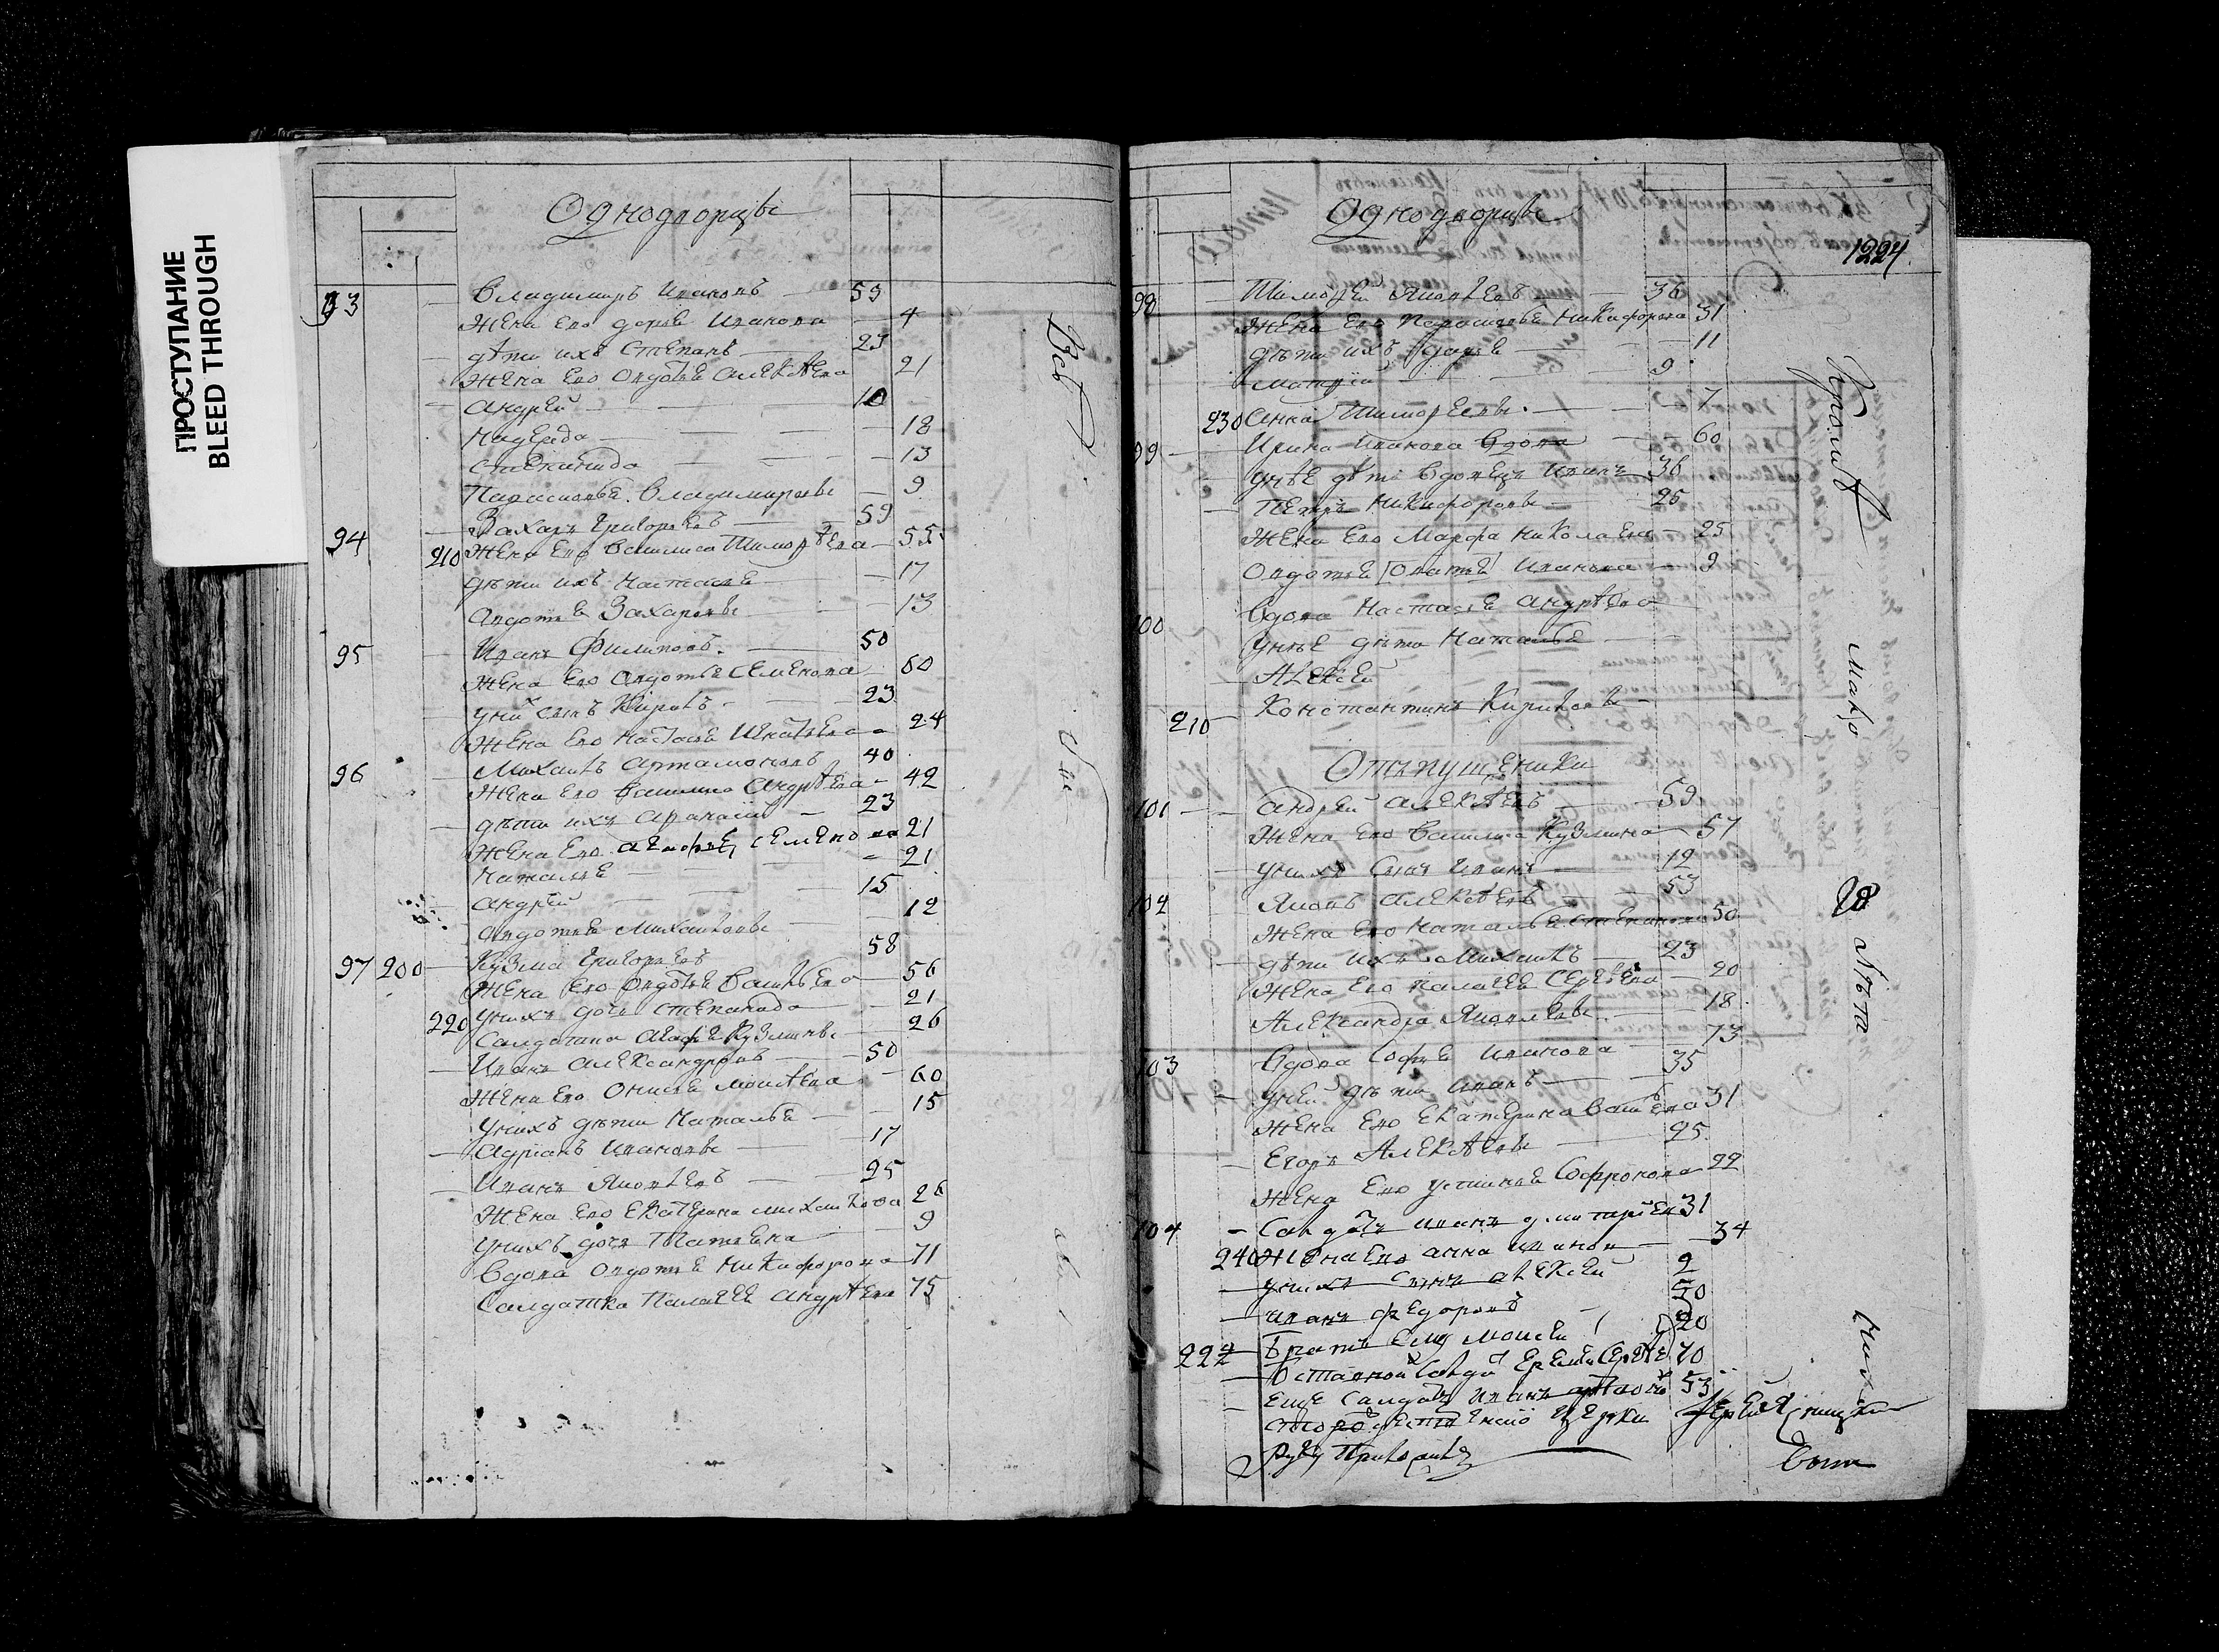 ПРОСТУПАНИЕ
BLEED THROUGH
Однодворцы
93 Владимиръ Ивановъ 59
Жена Его дарья Иванова 4
дѣти ихъ Степанъ 23
Жена Его Овдотья Алексѣева 21
Андрей 10
Надежда 18
Степанида 13
Парасковья Владимировы 9
94 Захаръ Григорьевъ 59
210 Жена Его Василиса Тимофѣева 55
дѣти ихъ Настасья 17
Авдотья Захаровы 13
95 Иванъ Филиповъ 50
Жена Его Авдотья Семенова 60
у них сынъ Кирилъ 23
Жена Его Настасья Игнатьева 24
96 Михаилъ Артамоновъ 40
Жена Его Василиса Андрѣева 42
дѣти ихъ Афанасий 23
Жена Его Агафья Семенова 21
Наталья 21
Андрей 15
Авдотья Михаиловы 12
97 200 Кузма Григорьевъ 58
Жена Его Овдотья Васильева 56
220 у нихъ дочь Степанида 21
Салдатка Агафья Кузмины 26
Иванъ Александровъ 50
Жена Его Онисья Моисѣева 60
у нихъ дѣти Наталья 15
Адрианъ Ивановы 17
Иванъ Яковлевъ 25
Жена Его Екатерина Михаилова 26
у нихъ дочь Татьяна 9
Вдова Овдотья Никифорова 71
Салдатка Палагея Андрѣева 75
Всѣ
Однодворцы
1224
98 Тимофей Яковлевъ 36
Жена Его Парасковья Никифорова 31
дѣти ихъ дарья 11
Матфий 9
230 Анна Тимофеевы 7
99 Ирина Иванова Вдова 60
у нее дѣти Вдовецъ Иванъ 36
Петръ Никифоровы 25
Жена Его Марфа Николаева 25
Овдотья Иванова 9
100 Вдова Настасья Андрѣева
у нее дѣти Наталья
Алексей
210 Константинъ Кириловы
Отпущеники
101 Андрей Алексѣевъ 59
Жена Его Василиса Кузмина 57
у нихъ Сынъ Иванъ 12
102 Яковъ Алексѣевъ 53
Жена Его Наталья Степанова 50
дѣти ихъ Михаилъ 23
Жена Его Палагея Сергѣева 20
Александра Яковлевы 18
103 Вдова Софья Иванова 73
у ней дѣти Иванъ 35
Жена Его Екатерина Васильева 31
Егоръ Алексѣевы 25
Жена Его устинья Софронова 22
104 Салдатъ Иванъ дмитриев 31
240 Жена Его Анна Иванова 34
у нихъ Сынъ Алексей 2
Иванъ федоровъ 50
222 Братъ Ему Моисей 20
Отставной Салда Еремей 70
Еще Салдатъ Иванъ 53
Церкви Иерей
Руку Приложилъ
Кромѣ
мало
лѣтн